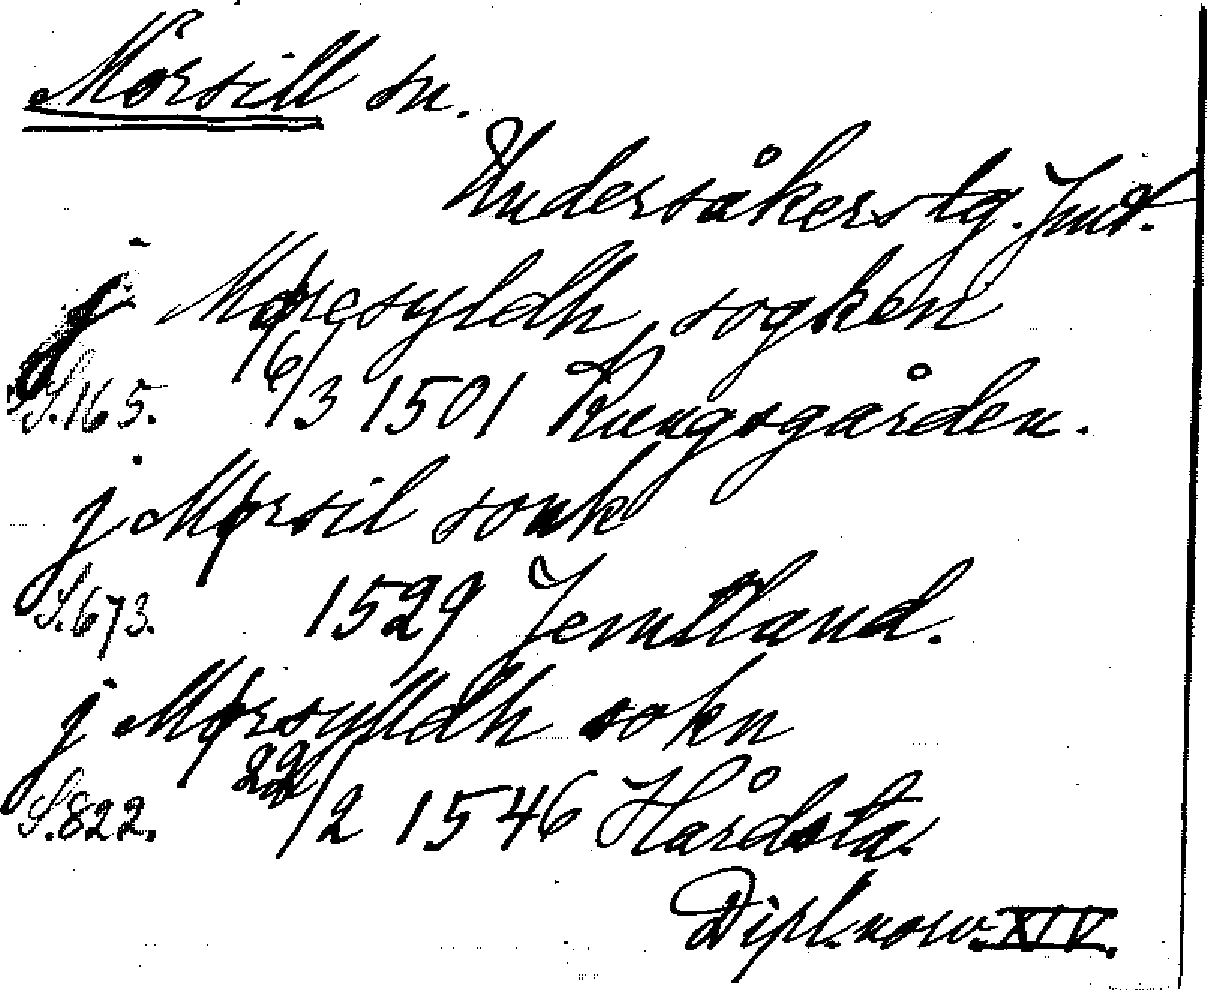 Mörsill sn.
Undersåkers tg. Jmt.
j Møresyldh sogken
S. 165. 16/3 1501 Kungsgården.
j Mørsil sonk
S. 673. 1529 Jemtland.
j Mørsylldh sokn
S. 822. 22/2 1546 Hårdsta.
Dipl. norv. XIV.